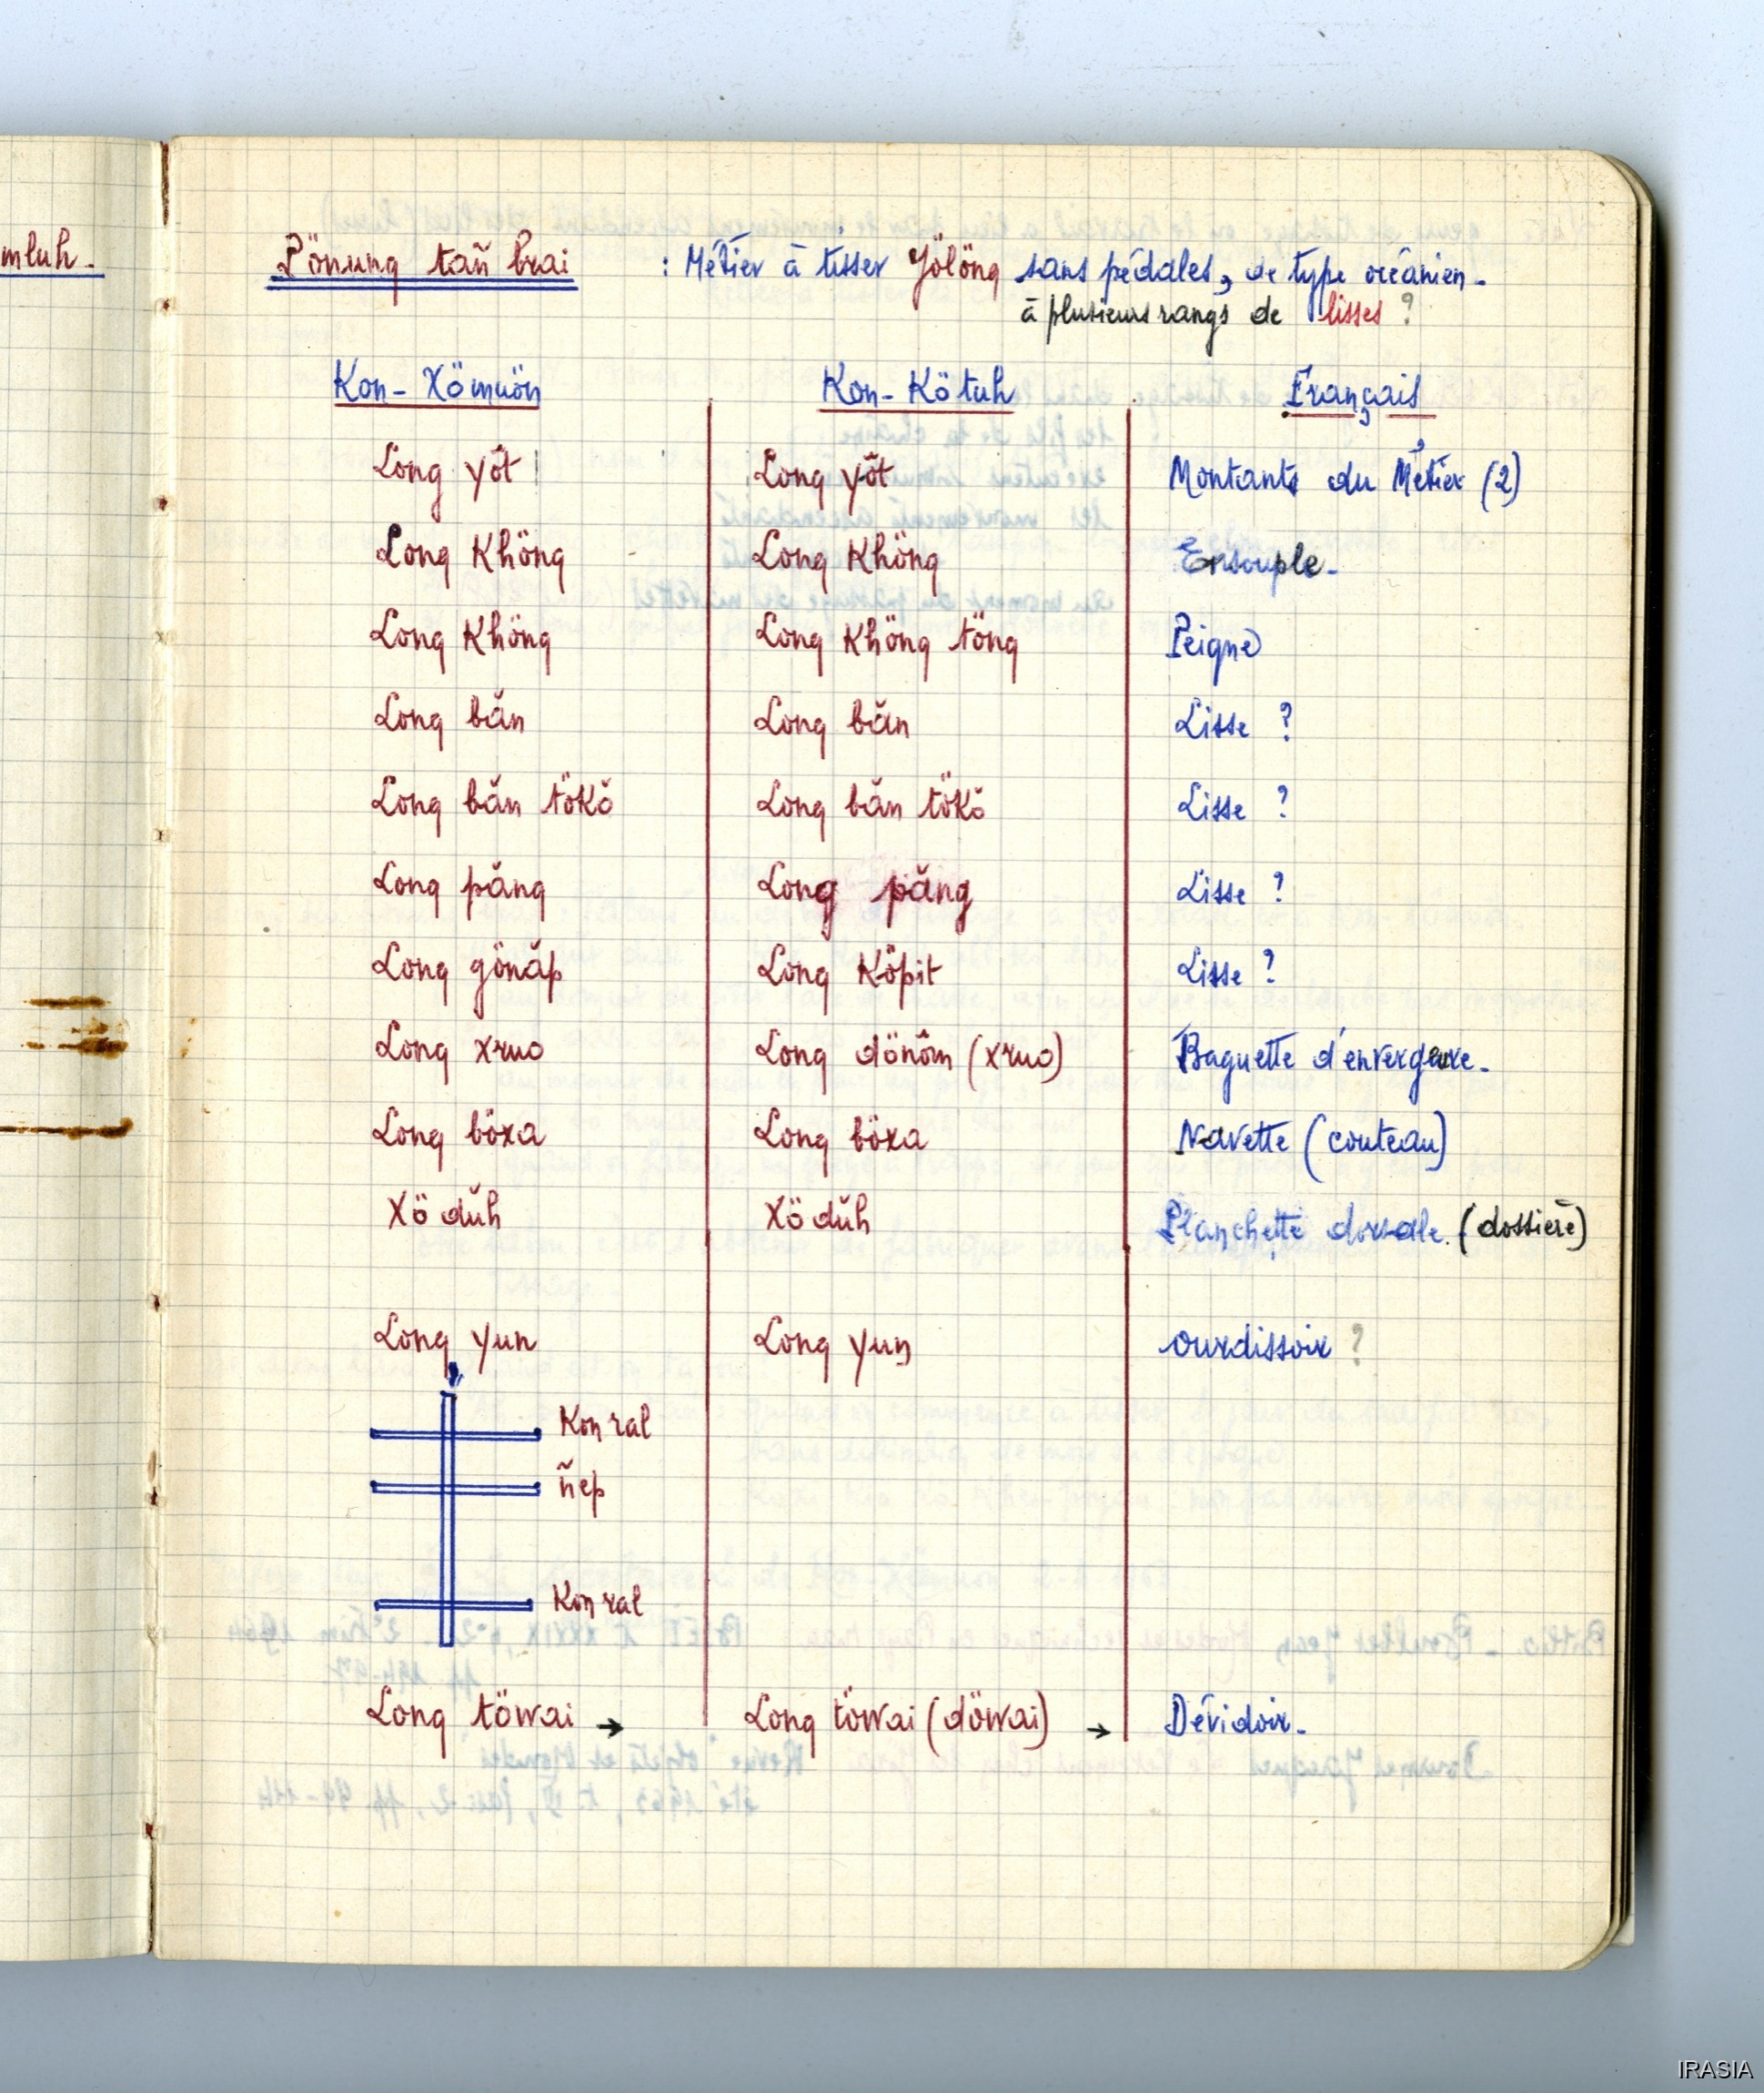 mluh.
Pönung tañ brai : Métier à tisser Jölöng sans pédales, de type océanien.
à plusieurs rangs de lisses ?
Kon-Xömuön Kon-Kötuh Français
Long yôt Long yôt Montants du Métier (2)
Long Khöng Long Khöng Ensouple.
Long Khöng Long Khöng töng Peigne
Long băn Long băn Lisse ?
Long băn tökŏ Long băn tökŏ Lisse ?
Long păng Long păng Lisse ?
Long gönăp Long Köpit Lisse ?
Long xruo Long dönôm (xruo) Baguette d'envergure.
Long böxa Long böxa Navette (couteau)
Xö dŭh Xö dŭh Planchette dorsale. (dossière)
Long yun Long yun ourdissoir ?
Kon ral
ñep
Kon ral
Long töwai → Long töwai (döwai) → Dévidoir.
IRASIA